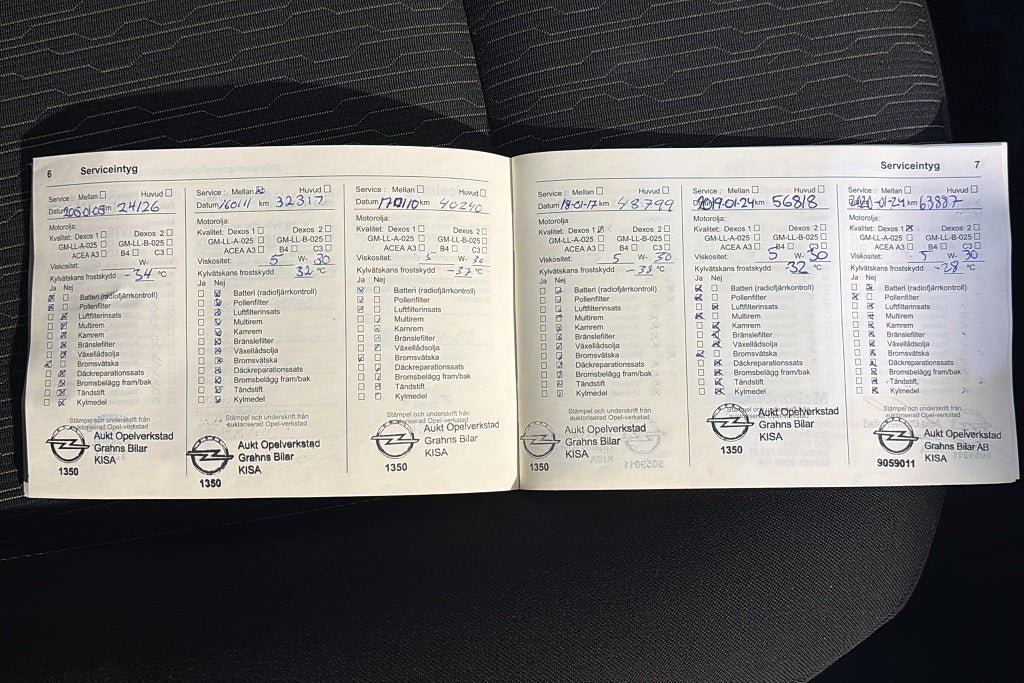 6 Serviceintyg
Service : Mellan Huvud
Datum km 24126
Motorolja:
Kvalitet: Dexos 1 Dexos 2
GM-LL-A-025 GM-LL-B-025
ACEA A3 B4 C3
Viskositet: W-
Kylvätskans frostskydd -34 °C
Ja Nej
Batteri (radiofjärrkontroll)
Pollenfilter
Luftfilterinsats
Multirem
Kamrem
Bränslefilter
Växellådsolja
Bromsvätska
Däckreparationssats
Bromsbelägg fram/bak
Tändstift
Kylmedel
Stämpel och underskrift från
auktoriserad Opel-verkstad
Aukt Opelverkstad
Grahns Bilar
KISA
1350
Service : Mellan Huvud
Datum 160111 km 32317
Motorolja:
Kvalitet: Dexos 1 Dexos 2
GM-LL-A-025 GM-LL-B-025
ACEA A3 B4 C3
Viskositet: 5 W- 30
Kylvätskans frostskydd 32 °C
Ja Nej
Batteri (radiofjärrkontroll)
Pollenfilter
Luftfilterinsats
Multirem
Kamrem
Bränslefilter
Växellådsolja
Bromsvätska
Däckreparationssats
Bromsbelägg fram/bak
Tändstift
Kylmedel
Stämpel och underskrift från
auktoriserad Opel-verkstad
Aukt Opelverkstad
Grahns Bilar
KISA
1350
Service : Mellan Huvud
Datum 170110 km 40240
Motorolja:
Kvalitet: Dexos 1 Dexos 2
GM-LL-A-025 GM-LL-B-025
ACEA A3 B4 C3
Viskositet: 5 W- 30
Kylvätskans frostskydd -37 °C
Ja Nej
Batteri (radiofjärrkontroll)
Pollenfilter
Luftfilterinsats
Multirem
Kamrem
Bränslefilter
Växellådsolja
Bromsvätska
Däckreparationssats
Bromsbelägg fram/bak
Tändstift
Kylmedel
Stämpel och underskrift från
auktoriserad Opel-verkstad
Aukt Opelverkstad
Grahns Bilar
KISA
1350
Serviceintyg 7
Service : Mellan Huvud
Datum 18-01-17 km 48799
Motorolja:
Kvalitet: Dexos 1 Dexos 2
GM-LL-A-025 GM-LL-B-025
ACEA A3 B4 C3
Viskositet: 5 W- 30
Kylvätskans frostskydd -38 °C
Ja Nej
Batteri (radiofjärrkontroll)
Pollenfilter
Luftfilterinsats
Multirem
Kamrem
Bränslefilter
Växellådsolja
Bromsvätska
Däckreparationssats
Bromsbelägg fram/bak
Tändstift
Kylmedel
Stämpel och underskrift från
auktoriserad Opel-verkstad
Aukt Opelverkstad
Grahns Bilar
KISA
1350
Service : Mellan Huvud
Datum 2019-01-24 km 56818
Motorolja:
Kvalitet: Dexos 1 Dexos 2
GM-LL-A-025 GM-LL-B-025
ACEA A3 B4 C3
Viskositet: 5 W- 30
Kylvätskans frostskydd -32 °C
Ja Nej
Batteri (radiofjärrkontroll)
Pollenfilter
Luftfilterinsats
Multirem
Kamrem
Bränslefilter
Växellådsolja
Bromsvätska
Däckreparationssats
Bromsbelägg fram/bak
Tändstift
Kylmedel
Stämpel och underskrift från
auktoriserad Opel-verkstad
Aukt Opelverkstad
Grahns Bilar
KISA
1350
Service : Mellan Huvud
Datum km 63887
Motorolja:
Kvalitet: Dexos 1 Dexos 2
GM-LL-A-025 GM-LL-B-025
ACEA A3 B4 C3
Viskositet: 5 W- 30
Kylvätskans frostskydd -28 °C
Ja Nej
Batteri (radiofjärrkontroll)
Pollenfilter
Luftfilterinsats
Multirem
Kamrem
Bränslefilter
Växellådsolja
Bromsvätska
Däckreparationssats
Bromsbelägg fram/bak
Tändstift
Kylmedel
Stämpel och underskrift från
auktoriserad Opel-verkstad
Aukt Opelverkstad
Grahns Bilar AB
KISA
9059011